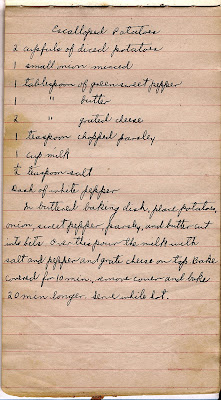 Escalloped Potatoes
2 cupfuls of diced potatoes
1 small onion minced
1 tablespoon of green sweet pepper
1 " butter
2 " grated cheese
1 teaspoon chopped parsley
1 cup milk
1/2 teaspoon salt
Dash of white pepper
In buttered baking dish, place potatoes,
onion, sweet pepper, parsley, and butter cut
into bits. Over this pour the milk with
salt and pepper and grate cheese on top. Bake
covered for 10 min, remove cover and bake
20 min longer. Serve while hot.